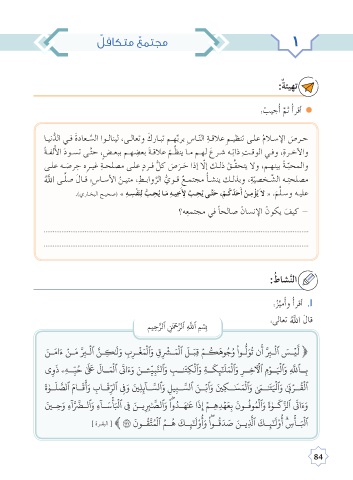 ١
مجتمعٌ متكافلٌ
تهيئةٌ:
أقرأُ ثمَّ أُجيبُ.
حرصَ الإسلامُ على تنظيمِ علاقةِ النَّاسِ بربِّهم تباركَ وتعالى، لينالوا السَّعادةَ في الدُّنيا
والآخرةِ، وفي الوقتِ ذاتِه شرعَ لهم ما ينظِّمُ علاقةَ بعضِهم ببعضٍ، حتَّى تسودَ الأُلفةُ
والمحبَّةُ بينهم، ولا يتحقَّقُ ذلك إلَّا إذا حَرَصَ كلُّ فردٍ على مصلحةِ غيرِه حرصَه على
مصلحتِه الشَّخصيّةِ، وبذلك ينشأُ مجتمعٌ قويُّ الرَّوابطِ، متينُ الأساسِ، قالَ صلَّى اللهُ
عليه وسلَّمَ: « لَا يُؤْمِنُ أَحَدُكُمْ، حَتَّى يُحِبَّ لِأَخِيهِ مَا يُحِبُّ لِنَفْسِهِ » (صحيح البخاري).
– كيفَ يكونُ الإنسانُ صالحاً في مجتمعِه؟
النَّشاطُ:
1. أقرأُ وأُميِّزُ.
قالَ اللهُ تعالى:
بِسْمِ ٱللَّهِ ٱلرَّحْمَٰنِ ٱلرَّحِيمِ
﴿ لَّيْسَ ٱلْبِرَّ أَن تُوَلُّوا۟ وُجُوهَكُمْ قِبَلَ ٱلْمَشْرِقِ وَٱلْمَغْرِبِ وَلَٰكِنَّ ٱلْبِرَّ مَنْ ءَامَنَ
بِٱللَّهِ وَٱلْيَوْمِ ٱلْءَاخِرِ وَٱلْمَلَٰٓئِكَةِ وَٱلْكِتَٰبِ وَٱلنَّبِيِّۦنَ وَءَاتَى ٱلْمَالَ عَلَىٰ حُبِّهِۦ ذَوِى
ٱلْقُرْبَىٰ وَٱلْيَتَٰمَىٰ وَٱلْمَسَٰكِينَ وَٱبْنَ ٱلسَّبِيلِ وَٱلسَّآئِلِينَ وَفِى ٱلرِّقَابِ وَأَقَامَ ٱلصَّلَوٰةَ
وَءَاتَى ٱلزَّكَوٰةَ وَٱلْمُوفُونَ بِعَهْدِهِمْ إِذَا عَٰهَدُوا۟ وَٱلصَّٰبِرِينَ فِى ٱلْبَأْسَآءِ وَٱلضَّرَّآءِ وَحِينَ
ٱلْبَأْسِ أُو۟لَٰٓئِكَ ٱلَّذِينَ صَدَقُوا۟ وَأُو۟لَٰٓئِكَ هُمُ ٱلْمُتَّقُونَ ﴾ [البقرة]
84